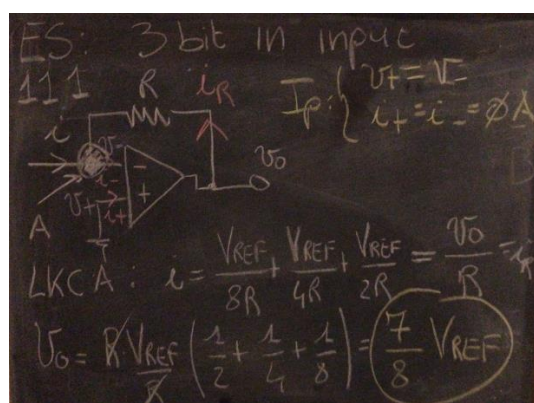 ES: 3 bit in input
111
R
i_R
Ip: { v+ = v-
i+ = i- = ∅ A
i
v-
-
i-
v0
v+
i+
+
A
LKC A: i = VREF/8R + VREF/4R + VREF/2R = v0/R = iR
v0 = R VREF/R (1/2 + 1/4 + 1/8) = 7/8 VREF